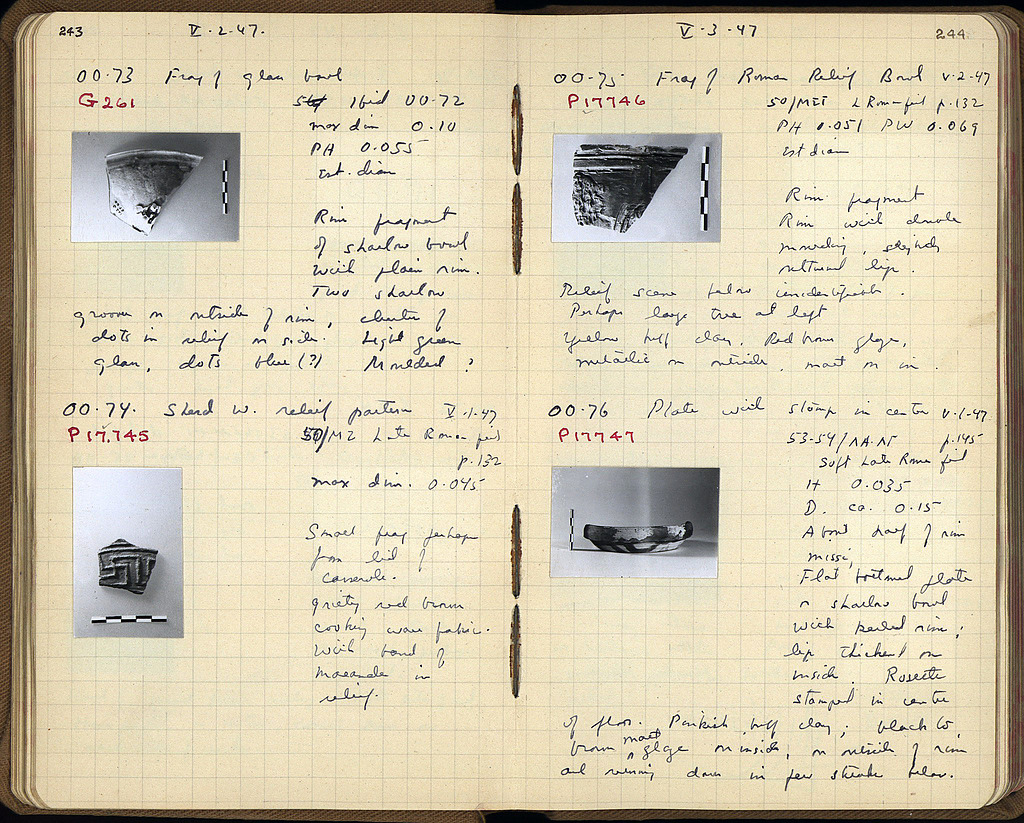 243
V·2·47.
OO·73 Frag of glass bowl
G 261
Ibid OO·72
max dim 0.10
PH 0.055
Est. diam
Rim fragment
of shallow bowl
with plain rim.
Two shallow
grooves on outside of rim, cluster of
dots in relief on side. Light green
glass, dots blue (?) Moulded ?
OO·74. Sherd w. relief pattern V·1·47
P 17,745
50/MZ Late Roman fill
p.132
max dim. 0.045
Small frag perhaps
from lid of
casserole.
gritty red brown
cooking ware fabric.
With band of
maeander in
relief.
V·3·47
244
OO·75 Frag of Roman Relief Bowl V·2·47
P17746
L Roman fill p.132
PH 0.051 PW 0.069
Est diam
Rim fragment
Rim with double
moulding, slightly
outturned lip.
Relief scene below unidentifiable.
Perhaps large tree at left
Yellow buff clay. Red brown glaze,
metallic on outside, matt on in.
OO·76 Plate with stamp in centre V·1·47
P17747
53-54/ p.145
Late Roman fill
H 0.035
D. ca. 0.15
About half of rim
missing
Flat bottomed plate
or shallow bowl
with rim;
lip thickened on
inside. Rosette
stamped in centre
of floor. Pinkish buff clay; black to
brown matt glaze on inside, on outside of rim
and running down in few streaks below.